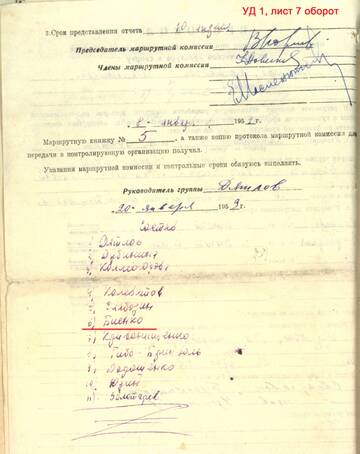 УД 1, лист 7 оборот
3.Срок представления отчета 10
Председатель маршрутной комиссии
Члены маршрутной комиссии
8 января 1959 г.
Маршрутную книжку № 5, а также копию протокола маршрутной комиссии для
передачи в контролирующую организацию получил.
Указания маршрутной комиссии и контрольные сроки обязуюсь выполнять.
Руководитель группы Дятлов
20 января 1959г.
1) Дятлов
2) Дубинина
3) Колмогорова
4) Колеватов
5) Слободин
6) Биенко
7) Кривонищенко
8) Тибо-Бриньоль
9) Дорошенко
10) Юдин
11) Золотарев